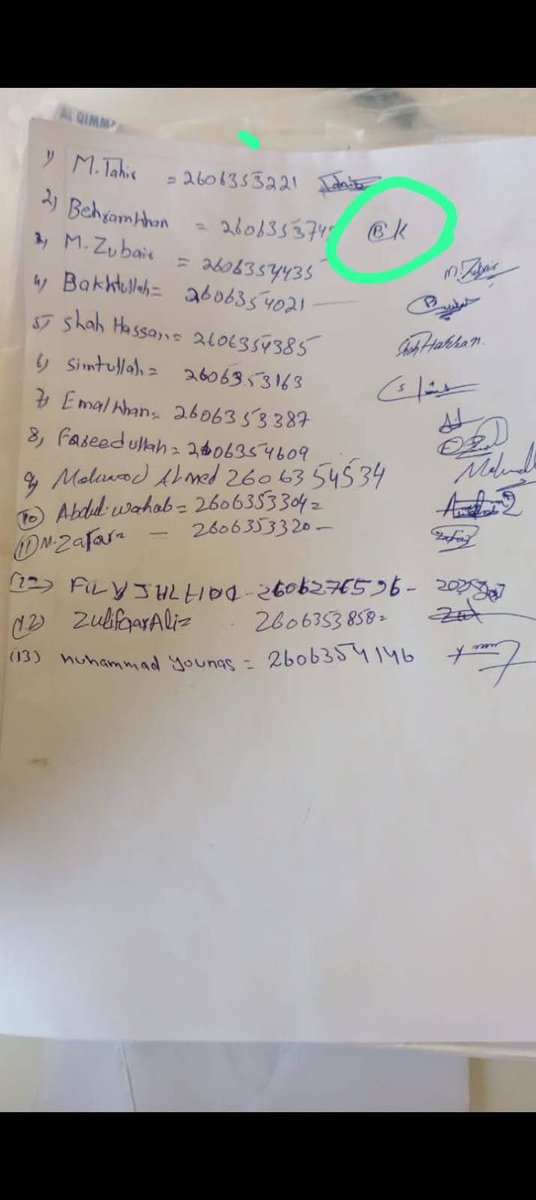 AL QIMMA
1) M.Tahir = 2606353221 Tahir
2) Behramkhan = 260635374 BK
3) M.Zubair = 2606354435 M.Zubair
4) Bakhtullah = 2606354021
5) Shah Hassan = 2606354385 Shah Hassan.
6) Simtullah = 2606353163
7) Emalkhan = 2606353387
8) Fareedullah = 2606354609
9) Mehmood Ahmed 2606354534
(10) Abdul-wahab = 2606353304 =
(11) M.Zafar = — 2606353320 — Zafar
(12) 2606276596 -
(12) Zulifqar Ali = 2606353858 =
(13) muhammad younas = 2606354146